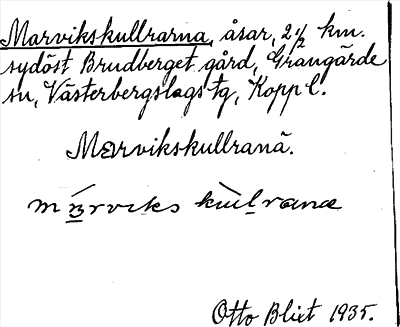 Marvikskullrarna, åsar, 2½ km.
sydöst Brudberget gård, Grangärde
sn, Västerbergslags tg, Kopp l.
Marvikskullranä.
Otto Blixt 1935.